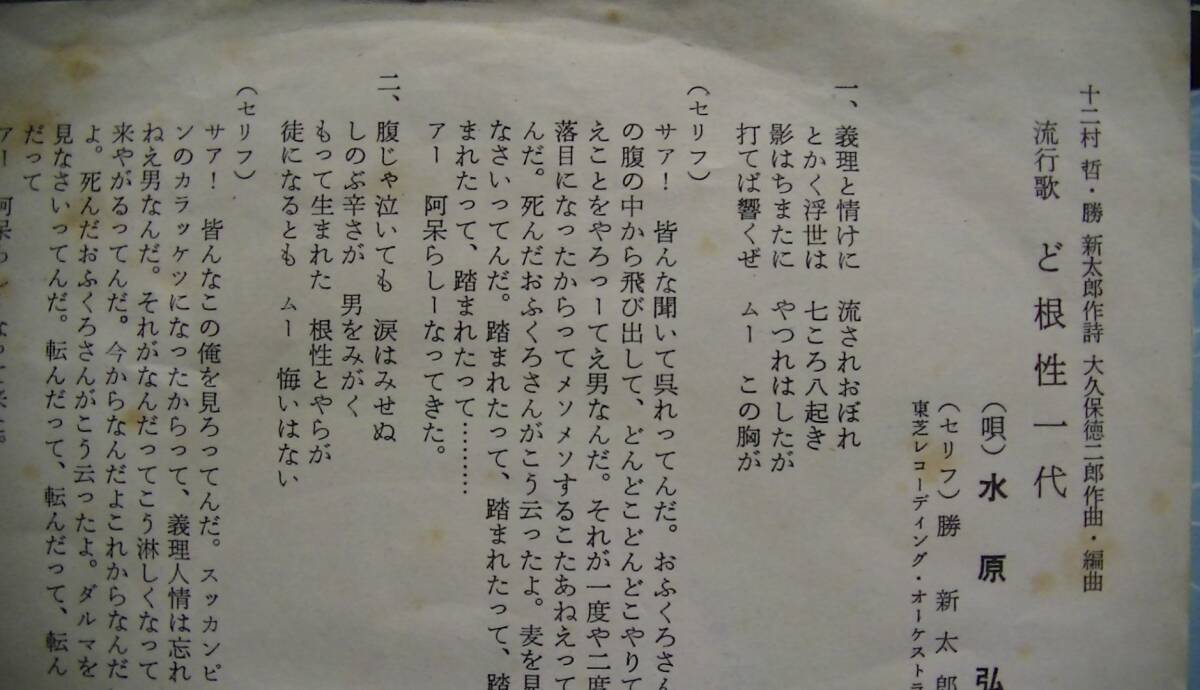 十二村 哲・勝 新太郎作詩 大久保徳二郎作曲・編曲
流行歌 ど根性一代
(唄)水原弘
(セリフ)勝 新太郎
東芝レコーディング・オーケストラ
一、義理と情けに 流されおぼれ
とかく浮世は 七ころ八起き
影はちまたに やつれはしたが
打てば響くぜ ムー この胸が
(セリフ)
サア! 皆んな聞いて呉れってんだ。おふくろさん
の腹の中から飛び出して、どんどこどんどこやりて
えことをやろっーてえ男なんだ。それが一度や二度
落目になったからってメソメソするこたあねえって
んだ。死んだおふくろさんがこう云ったよ。麦を見
なさいってんだ。踏まれたって、踏まれたって、踏
まれたって、踏まれたって………
アー 阿呆らしーなってきた。
二、腹じゃ泣いても 涙はみせぬ
しのぶ辛さが 男をみがく
もって生まれた 根性とやらが
徒になるとも ムー 悔いはない
(セリフ)
サア! 皆んなこの俺を見ろってんだ。スッカンピ
ンのカラッケツになったからって、義理人情は忘れ
ねえ男なんだ。それがなんだってこう淋しくなって
来やがるってんだ。今からなんだよこれからなんだ
よ。死んだおふくろさんがこう云ったよ。ダルマを
見なさいってんだ。転んだって、転んだって、転ん
だって